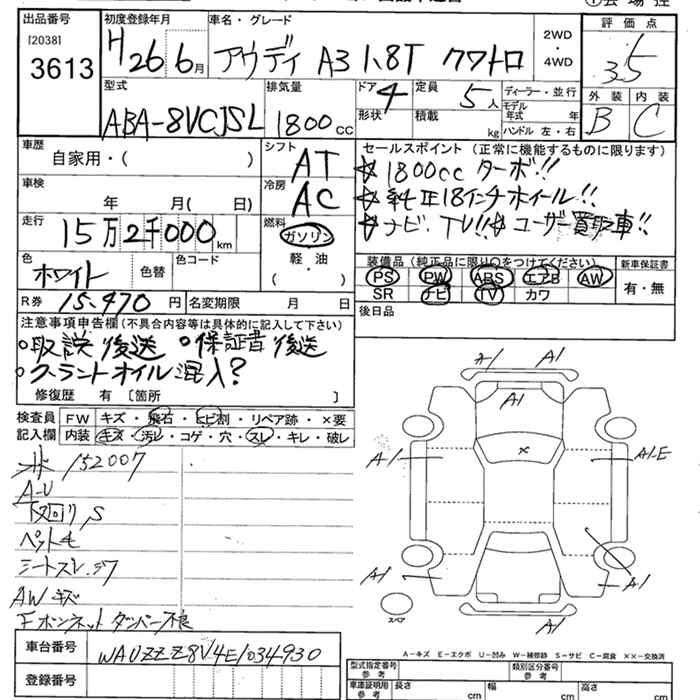 出品番号 初度登録年月 車名・グレード 評価点
[2038]
3613
H26 6月 アウディ A3 1.8T クワトロ 2WD・4WD 3.5
型式 排気量 ドア 4 定員 5人 ディーラー・並行 外装 内装
ABA-8VCJSL 1800cc 形状 積載 kg モデル年式 年 B C
ハンドル 左・右
車歴 シフト セールスポイント (正常に機能するものに限ります)
自家用・( ) AT ☆1800cc ターボ!!
車検 冷房 ☆純正18インチホイール!!
年 月( 日) AC ☆ナビ.TV!!☆ユーザー買取車!!
走行 燃料
15万2千000km ガソリン
色 色替 色コード 軽・油 装備品 (純正品に限り○をつけてください) 新車保証書
ホワイト ( ) PS PW ABS エアB AW 有・無
R券 15,470円 名変期限 月 日 SR ナビ TV カワ
注意事項申告欄 (不具合内容等は具体的に記入して下さい) 後日品
○取説後送 ○保証書後送
○クーラントオイル混入?
修復歴 有 [箇所 ]
検査員 FW キズ・飛石・ヒビ割・リペア跡・×要
記入欄 内装 キズ・汚レ・コゲ・穴・スレ・キレ・破レ
152007
A-U
S
ペットモ
シートスレ.
AWキズ
Fボンネットダンパー不良
A1 A1
A1
×
A1 A1-E
A1 A1
スペア
A-キズ E-エクボ U-凹み W-補修跡 S-サビ C-腐食 ××-交換済
車台番号 WAUZZZ8V4E1034930
登録番号
型式指定番号 参考 類別区分番号 参考
車庫証明用 参考 長さ cm 幅 cm 高さ cm